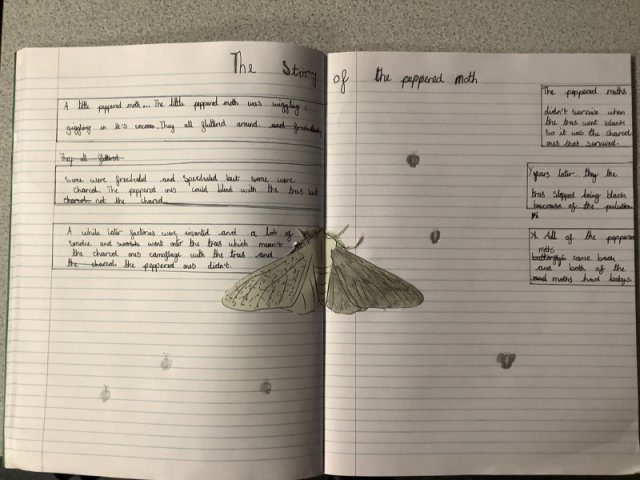 The Story of the peppered moth
A little peppered moth... The little peppered moth was wiggling &
giggling in it's cocoon. They all fluttered around and
They all fluttered
Some were freckuled and speckuled but some were
charced. The peppered ones could blend with the tras but
charced not the charced.
A while later factories wer invented and a lot of
smoke and went onto the tras which meant
the charced ones camoflage with the tras and
the charced the peppered ones didn't.
The peppered moths
didn't survive when
the tras went black
so it was the charced
ones that survived.
years later they the
tras stopped being black
because of the polution
All of the peppered
moths
came back
and both of the
and moths had babys